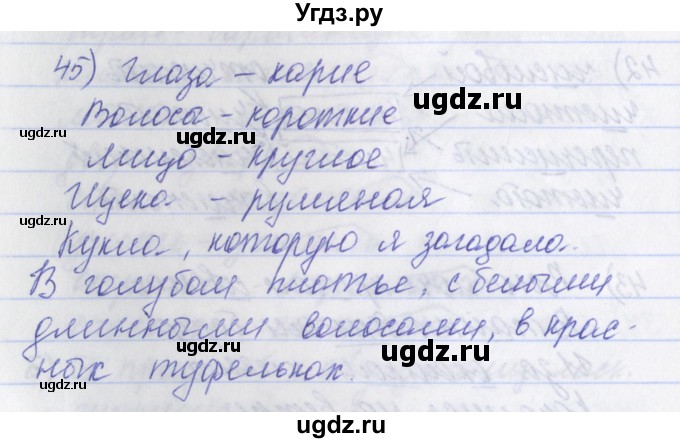 Угдз.ру
45) Глаза – карие
ugdz.ru
Волоса – короткие
ugdz.ru
Лицо – круглое
ugdz.ru
Щека – румяная
ugdz.ru
Кукла, которую я загадала.
В голубом платье, с белыми
ugdz.ru
длинными волосами, в крас-
ugdz.ru
ugdz.ru
ных туфельках.
ugdz.ru
ugdz.ru